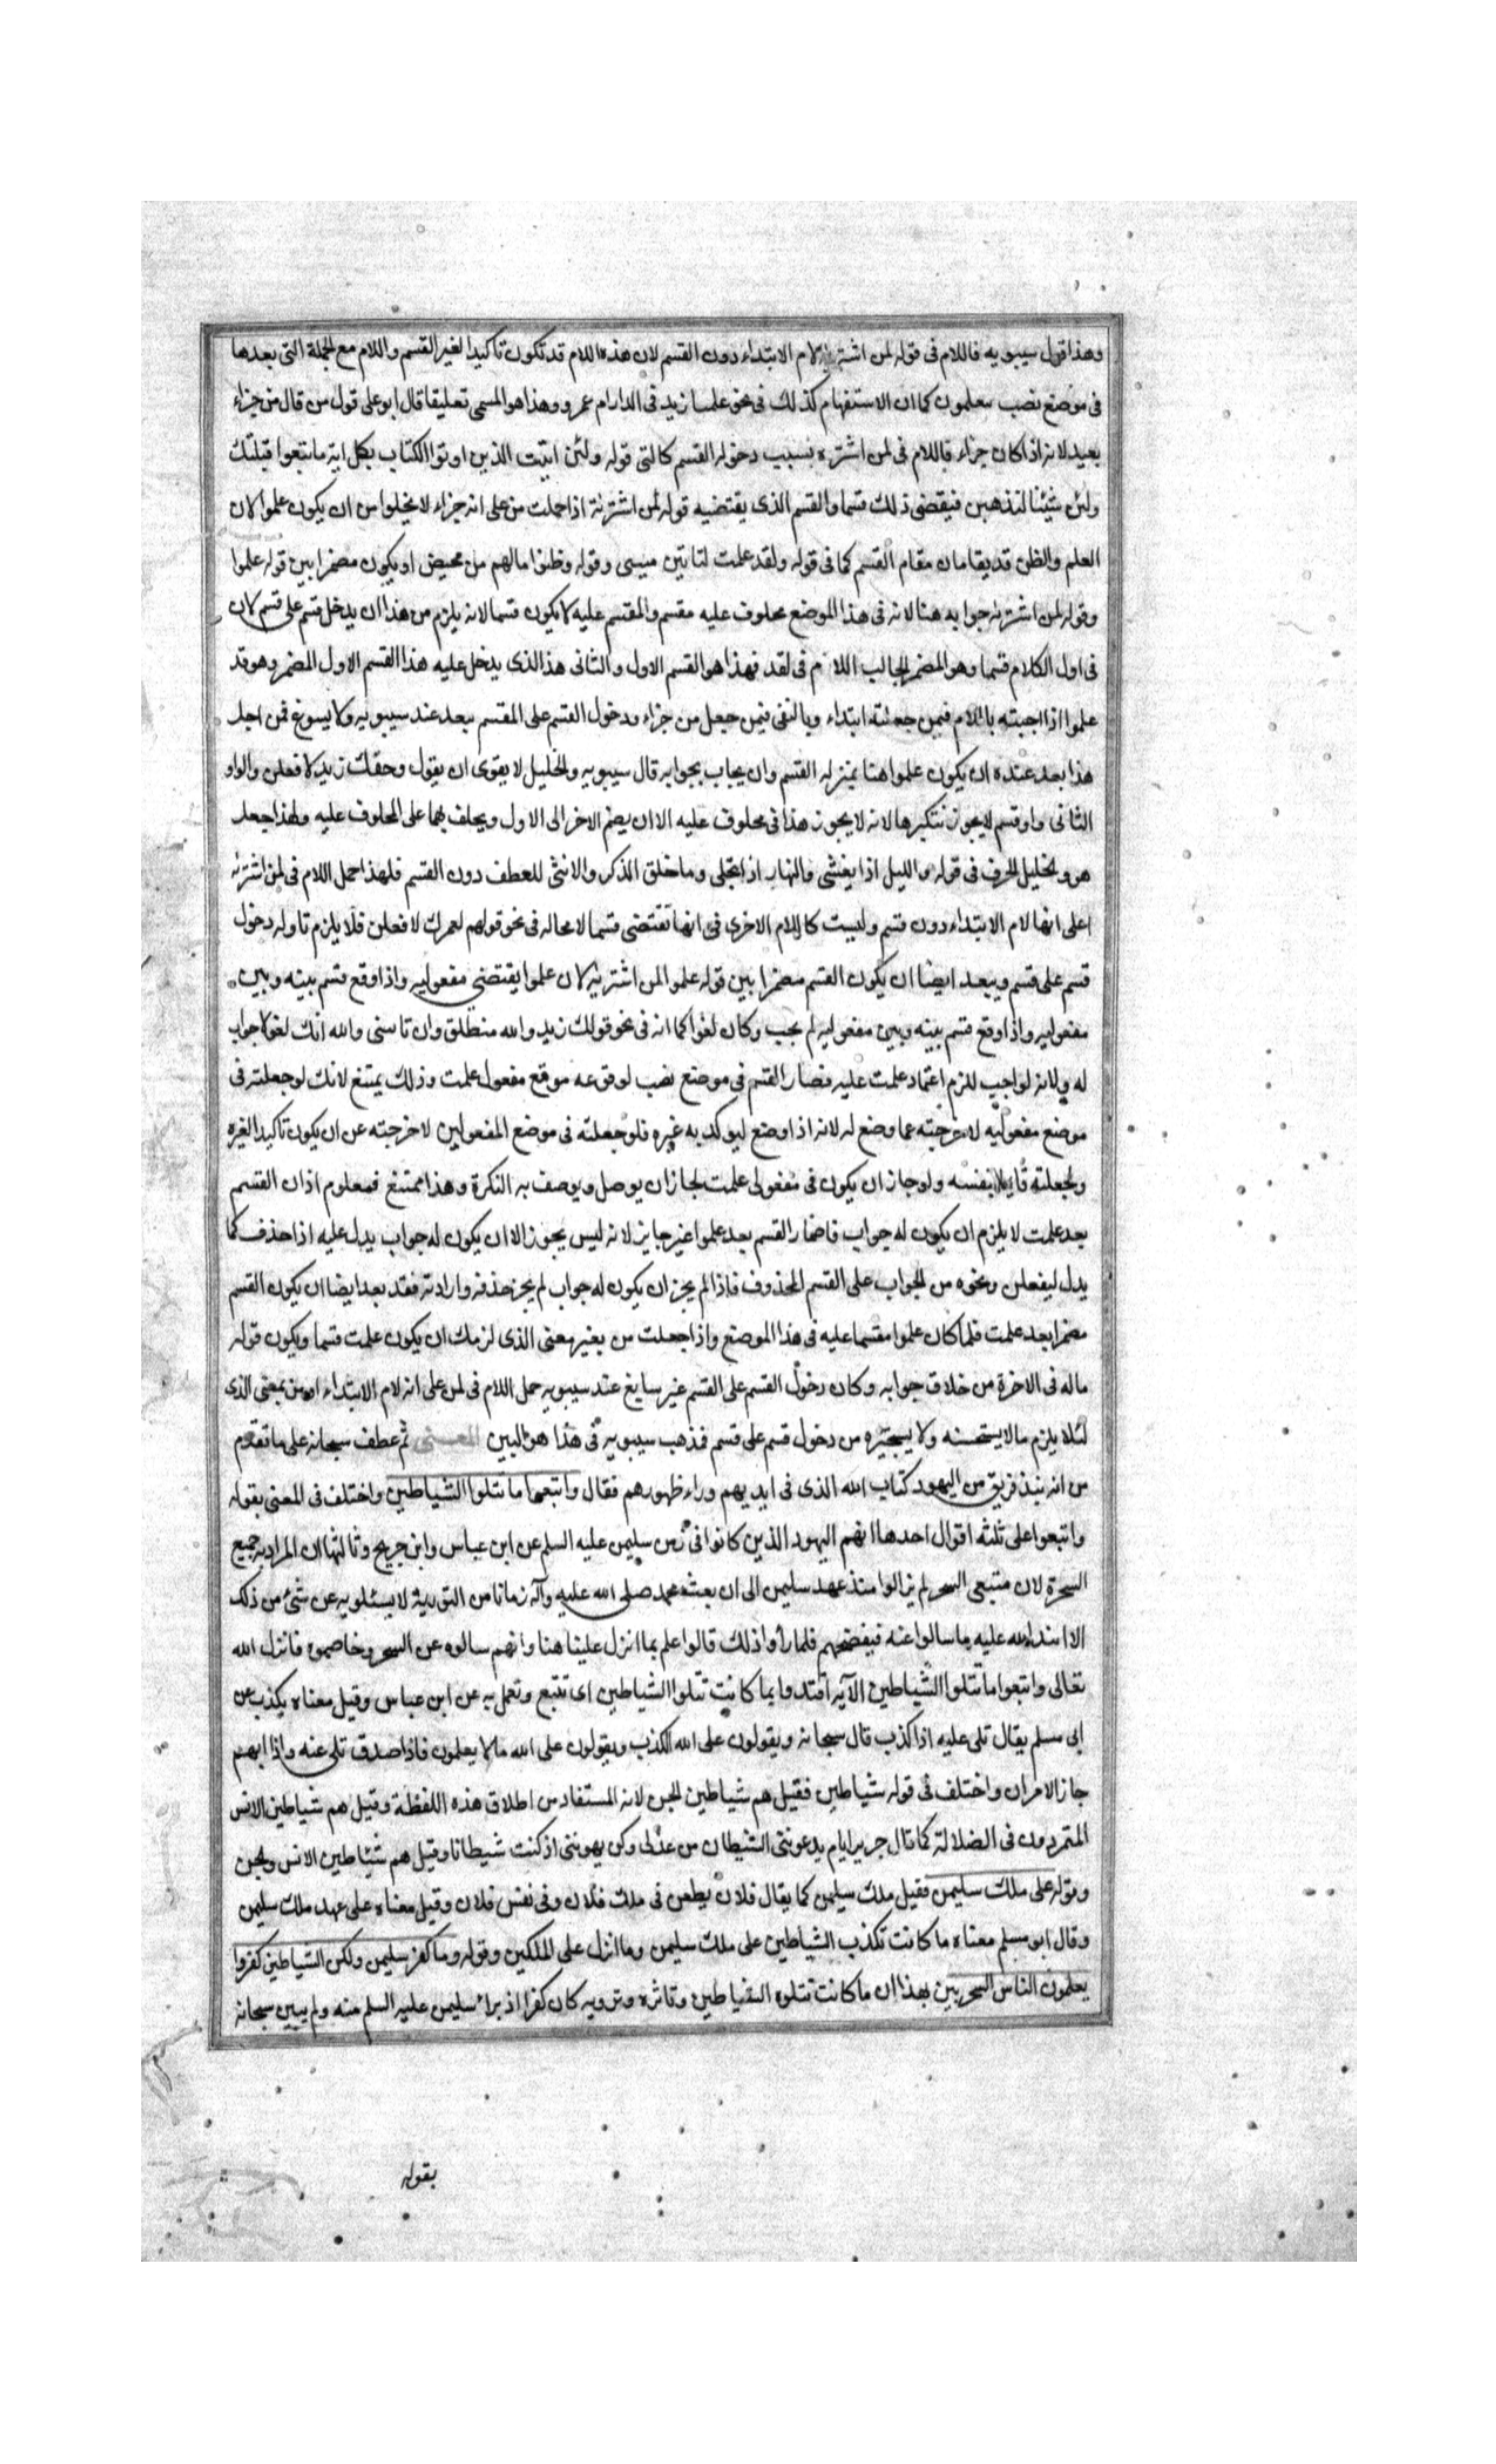 وهذا قول سيبويه فاللام فى قوله لمن اشتريه لام الابتداء دون القسم لان هذه اللام قد تكون تاكيدا لغير القسم واللام مع الجملة التى بعدها
فى موضع نصب بعلمون كما ان الاستفهام كذلك فى نحو علمنا زيد فى الدار ام عمرو وهذا هو المسمى تعليقا قال ابو على قول من قال من جزاء
بعيد لانه اذا كان جزاء فاللام فى لمن اشتره بسبب دخوله القسم كالتى قوله ولئن اتيت الذين اوتوا الكتاب بكل اية ما تبعوا قبلتك
ولئن شئنا لنذهبن فيقضى ذلك قسما والقسم الذى يقتضيه قوله لمن اشتريه اذا حملت من على انه جزاء لا يخلوا من ان يكون علموا لان
العلم والظن قد يقامان مقام القسم كما فى قوله ولقد علمت لتاتين ميسى وقوله وظنوا مالهم من محيص او يكون مضمرا بين قوله علموا
وقوله لمن اشتريه جوابه هنا لانه فى هذا الموضع محلوف عليه مقسم والمقسم عليه لا يكون قسما لانه يلزم من هذا ان يدخل قسم على قسم لان
فى اول الكلام قسما وهو المضمر الجالب اللام فى لقد فهذا هو القسم الاول والثانى هذا الذى يدخل عليه هذا القسم الاول المضمر وهو قد
علموا اذا اجبته باللام فيمن جعلته ابتداء وبالنفى فيمن جعل من جزاء ودخول القسم على المقسم يبعد عند سيبويه ولا يسوغ فمن اجل
هذا بعد عنده ان يكون علموا هنا بمنزله القسم وان يجاب بجوابه قال سيبويه والخليل لا يقوى ان يقول وحقك زيد لافعلن والواو
الثانى واو قسم لا يجوز تنكيرها لانه لا يجوز هذا فى محلوف عليه الا ان يضم الاخر الى الاول ويحلف بهما على المحلوف عليه ولهذا جعل
هو والخليل الحرف فى قوله والليل اذا يغشى والنهار اذا تجلى وما خلق الذكر والانثى للعطف دون القسم فلهذا حمل اللام فى لمن اشتريه
على انها لام الابتداء دون قسم وليست كاللام الاخرى فى انها تقتضى قسما لا محاله فى نحو قولهم لعمرك لافعلن فلا يلزم تاوله دخول
قسم على قسم ويبعد ايضا ان يكون القسم مضمرا بين قوله علموا لمن اشتريه لان علموا يقتضى مفعوليه واذا وقع قسم بينه وبين
مفعوليه واذا وقع قسم بينه وبين مفعوليه لم يجب وكان لغوا كما انه فى نحو قولك زيد والله منطلق وان تاتنى والله آتك لغو لا جواب
له ولانه لو اجيب للزم اعتماد علمت عليه فصار القسم فى موضع نصب لوقوعه موقع مفعول علمت وذلك يمتنع لانك لو جعلته فى
موضع مفعوليه لاخرجته عما وضع له لانه اذا وضع ليؤكد به غيره فلو جعلته فى موضع المفعولين لاخرجته عن ان يكون تاكيدا لغيره
ولجعلته قايما بنفسه ولو جاز ان يكون فى مفعولى علمت لجاز ان يوصل ويوصف به النكرة وهذا ممتنع فمعلوم اذا ان القسم
بعد علمت لا يلزم ان يكون له جواب فاضمار القسم بعد علموا غير جايز لانه ليس يجوز الا ان يكون له جواب يدل عليه اذا حذف كما
يدل ليفعلن ونحوه من الجواب على القسم المحذوف فاذا لم يجز ان يكون له جواب لم يجز حذفه وارادته فقد بعد ايضا ان يكون القسم
مضمرا بعد علمت فلما كان علموا مقسما عليه فى هذا الموضع واذا جعلت من بغير معنى الذى لزمك ان يكون علمت قسما ويكون قوله
ماله فى الاخرة من خلاق جوابه وكان دخول القسم على القسم غير سايغ عند سيبويه حمل اللام فى لمن على انه لام الابتداء ان من بمعنى الذى
لئلا يلزم مالا يستحسنه ولا يجيزه من دخول قسم على قسم فذهب سيبويه فى هذا هو البين المعنى ثم عطف سبحانه على ما تقدم
من انه نبذ فريق من اليهود كتاب الله الذى فى ايديهم وراء ظهورهم فقال واتبعوا ما تتلوا الشياطين واختلف فى المعنى بقوله
واتبعوا على ثلثه اقوال احدها انهم اليهود الذين كانوا فى زمن سليمن عليه السلم عن ابن عباس وابن جريج وثالثها ان المراد به جميع
السحرة لان متبعى السحر لم يزالوا منذ عهد سليمن الى ان بعث محمد صلى الله عليه وآله زمانا من التورية لا يسئلونه عن شئ من ذلك
الا انزل الله عليه ما سالوا عنه فيفضحهم فلما رأوا ذلك قالوا علم بما انزل علينا هنا وانهم سالوه عن السحر وخاصموه فانزل الله
تعالى واتبعوا ما تتلوا الشياطين الآية اقتدوا بما كانت تتلوا الشياطين اى تتبع وتعمل به عن ابن عباس وقيل معناه يكذب عن
ابى مسلم يقال تلى عليه اذا كذب قال سبحانه ويقولون على الله الكذب ويقولون على الله ما لا يعلمون فاذا صدق تلى عنه واذا ابهم
جاز الامران واختلف فى قوله شياطين فقيل هم شياطين الجن لانه المستفاد من اطلاق هذه اللفظة وقيل هم شياطين الانس
المتمردون فى الضلالة كما قال جرير ايام يدعوننى الشيطان من غزلى وكن يهويننى اذ كنت شيطانا وقيل هم شياطين الانس والجن
وقوله على ملك سليمن فقيل ملك سليمن كما يقال فلان يطعن فى ملك فلان وفى نفس فلان وقيل معناه على عهد ملك سليمن
وقال ابو مسلم معناه ما كانت تكذب الشياطين على ملك سليمن وما انزل على الملكين وقوله وما كفر سليمن ولكن الشياطين كفروا
يعلمون الناس السحر بين بهذا ان ما كانت تتلوه الشياطين وتاثره وترويه كان كفرا اذ براء سليمن عليه السلم منه ولم يبين سبحانه
بقوله